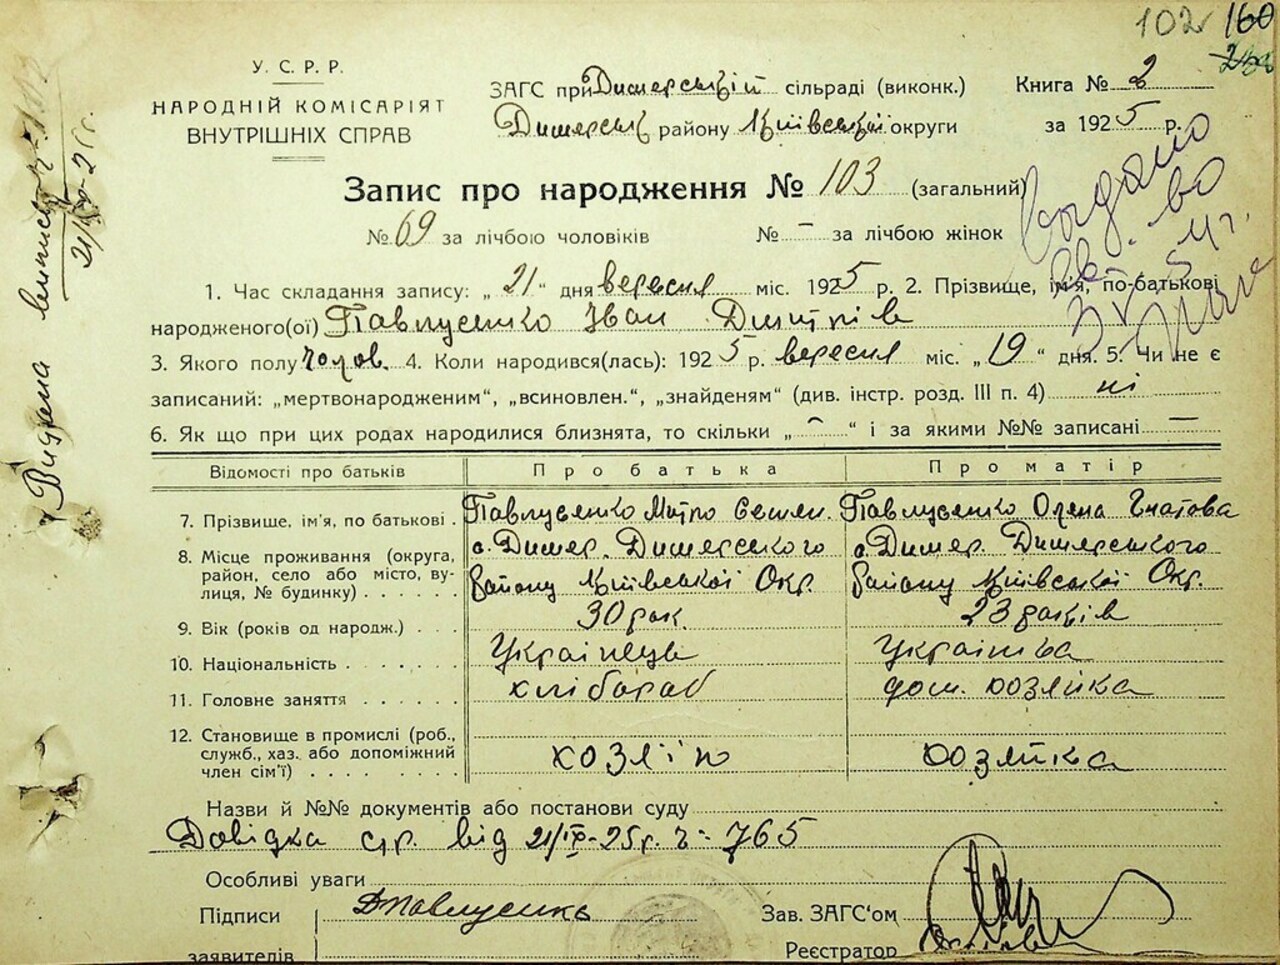 102 160
У. С. Р. Р.
НАРОДНІЙ КОМІСАРІЯТ
ВНУТРІШНІХ СПРАВ
ЗАГС при Димерській сільраді (виконк.) Книга № 2
Димерськ району Київської округи за 1925 р.
Запис про народження № 103 (загальний)
№ 69 за лічбою чоловіків № – за лічбою жінок
1. Час складання запису: „ 21 “ дня вересня міс. 1925 р. 2. Прізвище, ім'я, по-батькові
народженого(ої) Павлусенко Іван Дмитрів
3. Якого полу чолов. 4. Коли народився(лась): 1925 р. вересня міс. „ 19 “ дня. 5. Чи не є
записаний: „мертвонародженим“, „всиновлен.“, „знайденям“ (див. інстр. розд. III п. 4) ні
6. Як що при цих родах народилися близнята, то скільки „ – “ і за якими №№ записані –
Відомості про батьків Про батька Про матір
7. Прізвище, ім'я, по батькові . Павлусенко Митро Семен. Павлусенко Олена Гнатова
8. Місце проживання (округа, с. Димер. Димерського с. Димер. Димерського
район, село або місто, ву-
лиця, № будинку) . . . . . . району Київської Окр. району Київської Окр.
9. Вік (років од народж.) . . . 30 рок. 23 років
10. Національність . . . . . . Українець Українка
11. Головне заняття . . . . . . хлібороб дом. хозяйка
12. Становище в промислі (роб.,
служб., хаз. або допоміжний
член сім'ї) . . . . . . . . хозяїн хозяйка
Назви й №№ документів або постанови суду
Довідка с/р. від 21/IX-25р. ч- 765
Особливі уваги
Підписи ДПавлусенко Зав. ЗАГС'ом
заявителів Реєстратор
Видана виписка
21/IX-25г.
Выдано